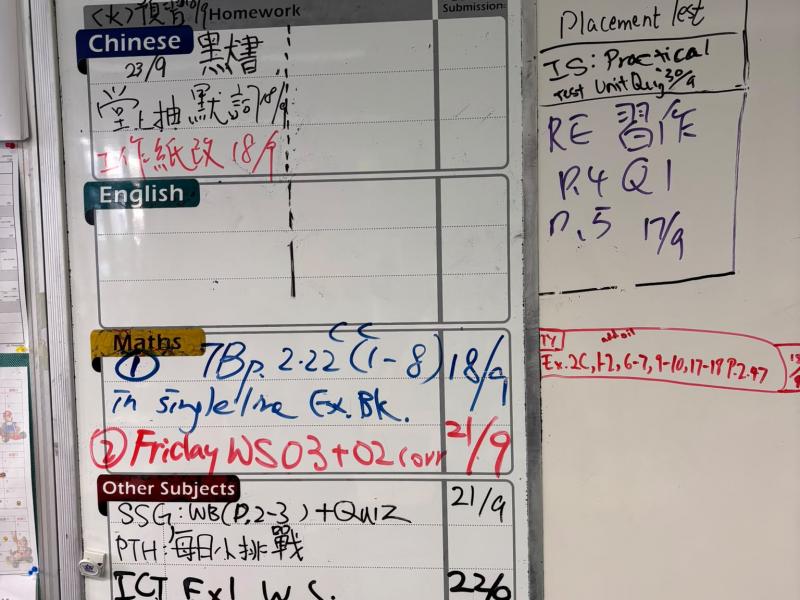 <火>預習 19/9
Homework
Submission:
Chinese
23/9 黑書
堂上抽默詞 18/9
工作紙改 18/9
English
Maths
CC
① 7B p. 2.22 (1-8) 18/9
in single line Ex. Bk.
② Friday WS 03 + 02 corr 21/9
Other Subjects
SSG: WB (P.2-3) + Quiz 21/9
PTH: 每日小挑戰
ICT Ex1 W.S.
Placement Test
IS: Practical
Test Unit Quiz 30/9
RE 習作
P.4 Q1
P.5 17/9
TY
Ex. 2C, 1-2, 6-7, 9-10, 17-18 P.2.47